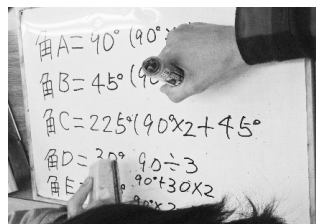 角A=90°(90°
角B=45°(90
角C=225°(90°×2+45°
角D=30° 90÷3
角E= 90°+30×2
90°×2